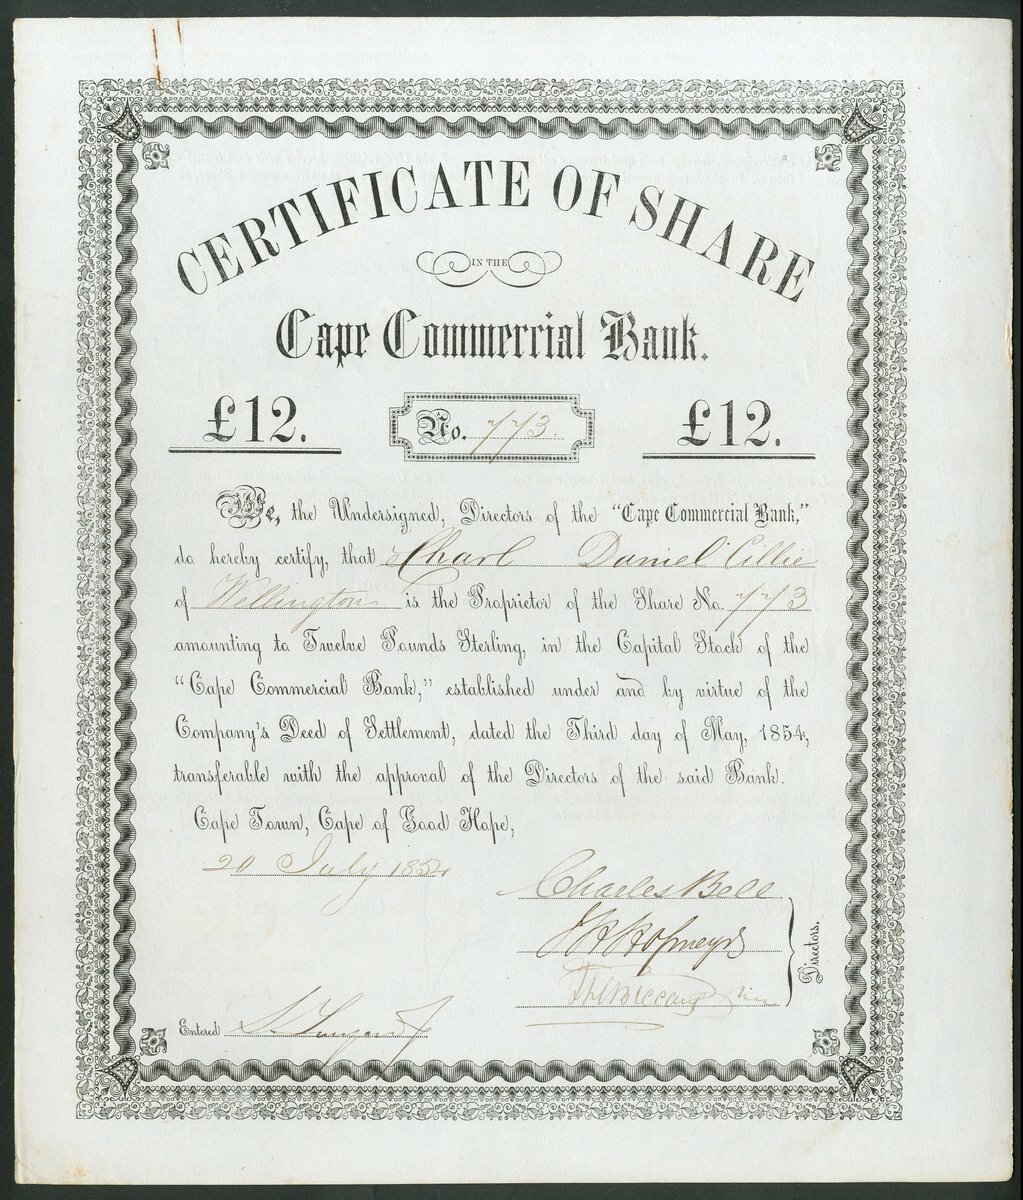 CERTIFICATE OF SHARE
IN THE
Cape Commercial Bank.
£12. No. 773 £12.
We, the Undersigned, Directors of the "Cape Commercial Bank,"
do hereby certify, that Charl Daniel Cillie
of Wellington is the Proprietor of the Share No. 773
amounting to Twelve Pounds Sterling, in the Capital Stock of the
"Cape Commercial Bank," established under and by virtue of the
Company's Deed of Settlement, dated the Third day of May, 1854,
transferable with the approval of the Directors of the said Bank.
Cape Town, Cape of Good Hope,
20 July 1854
Charles Bell
Hofmeyr
Directors.
Entered